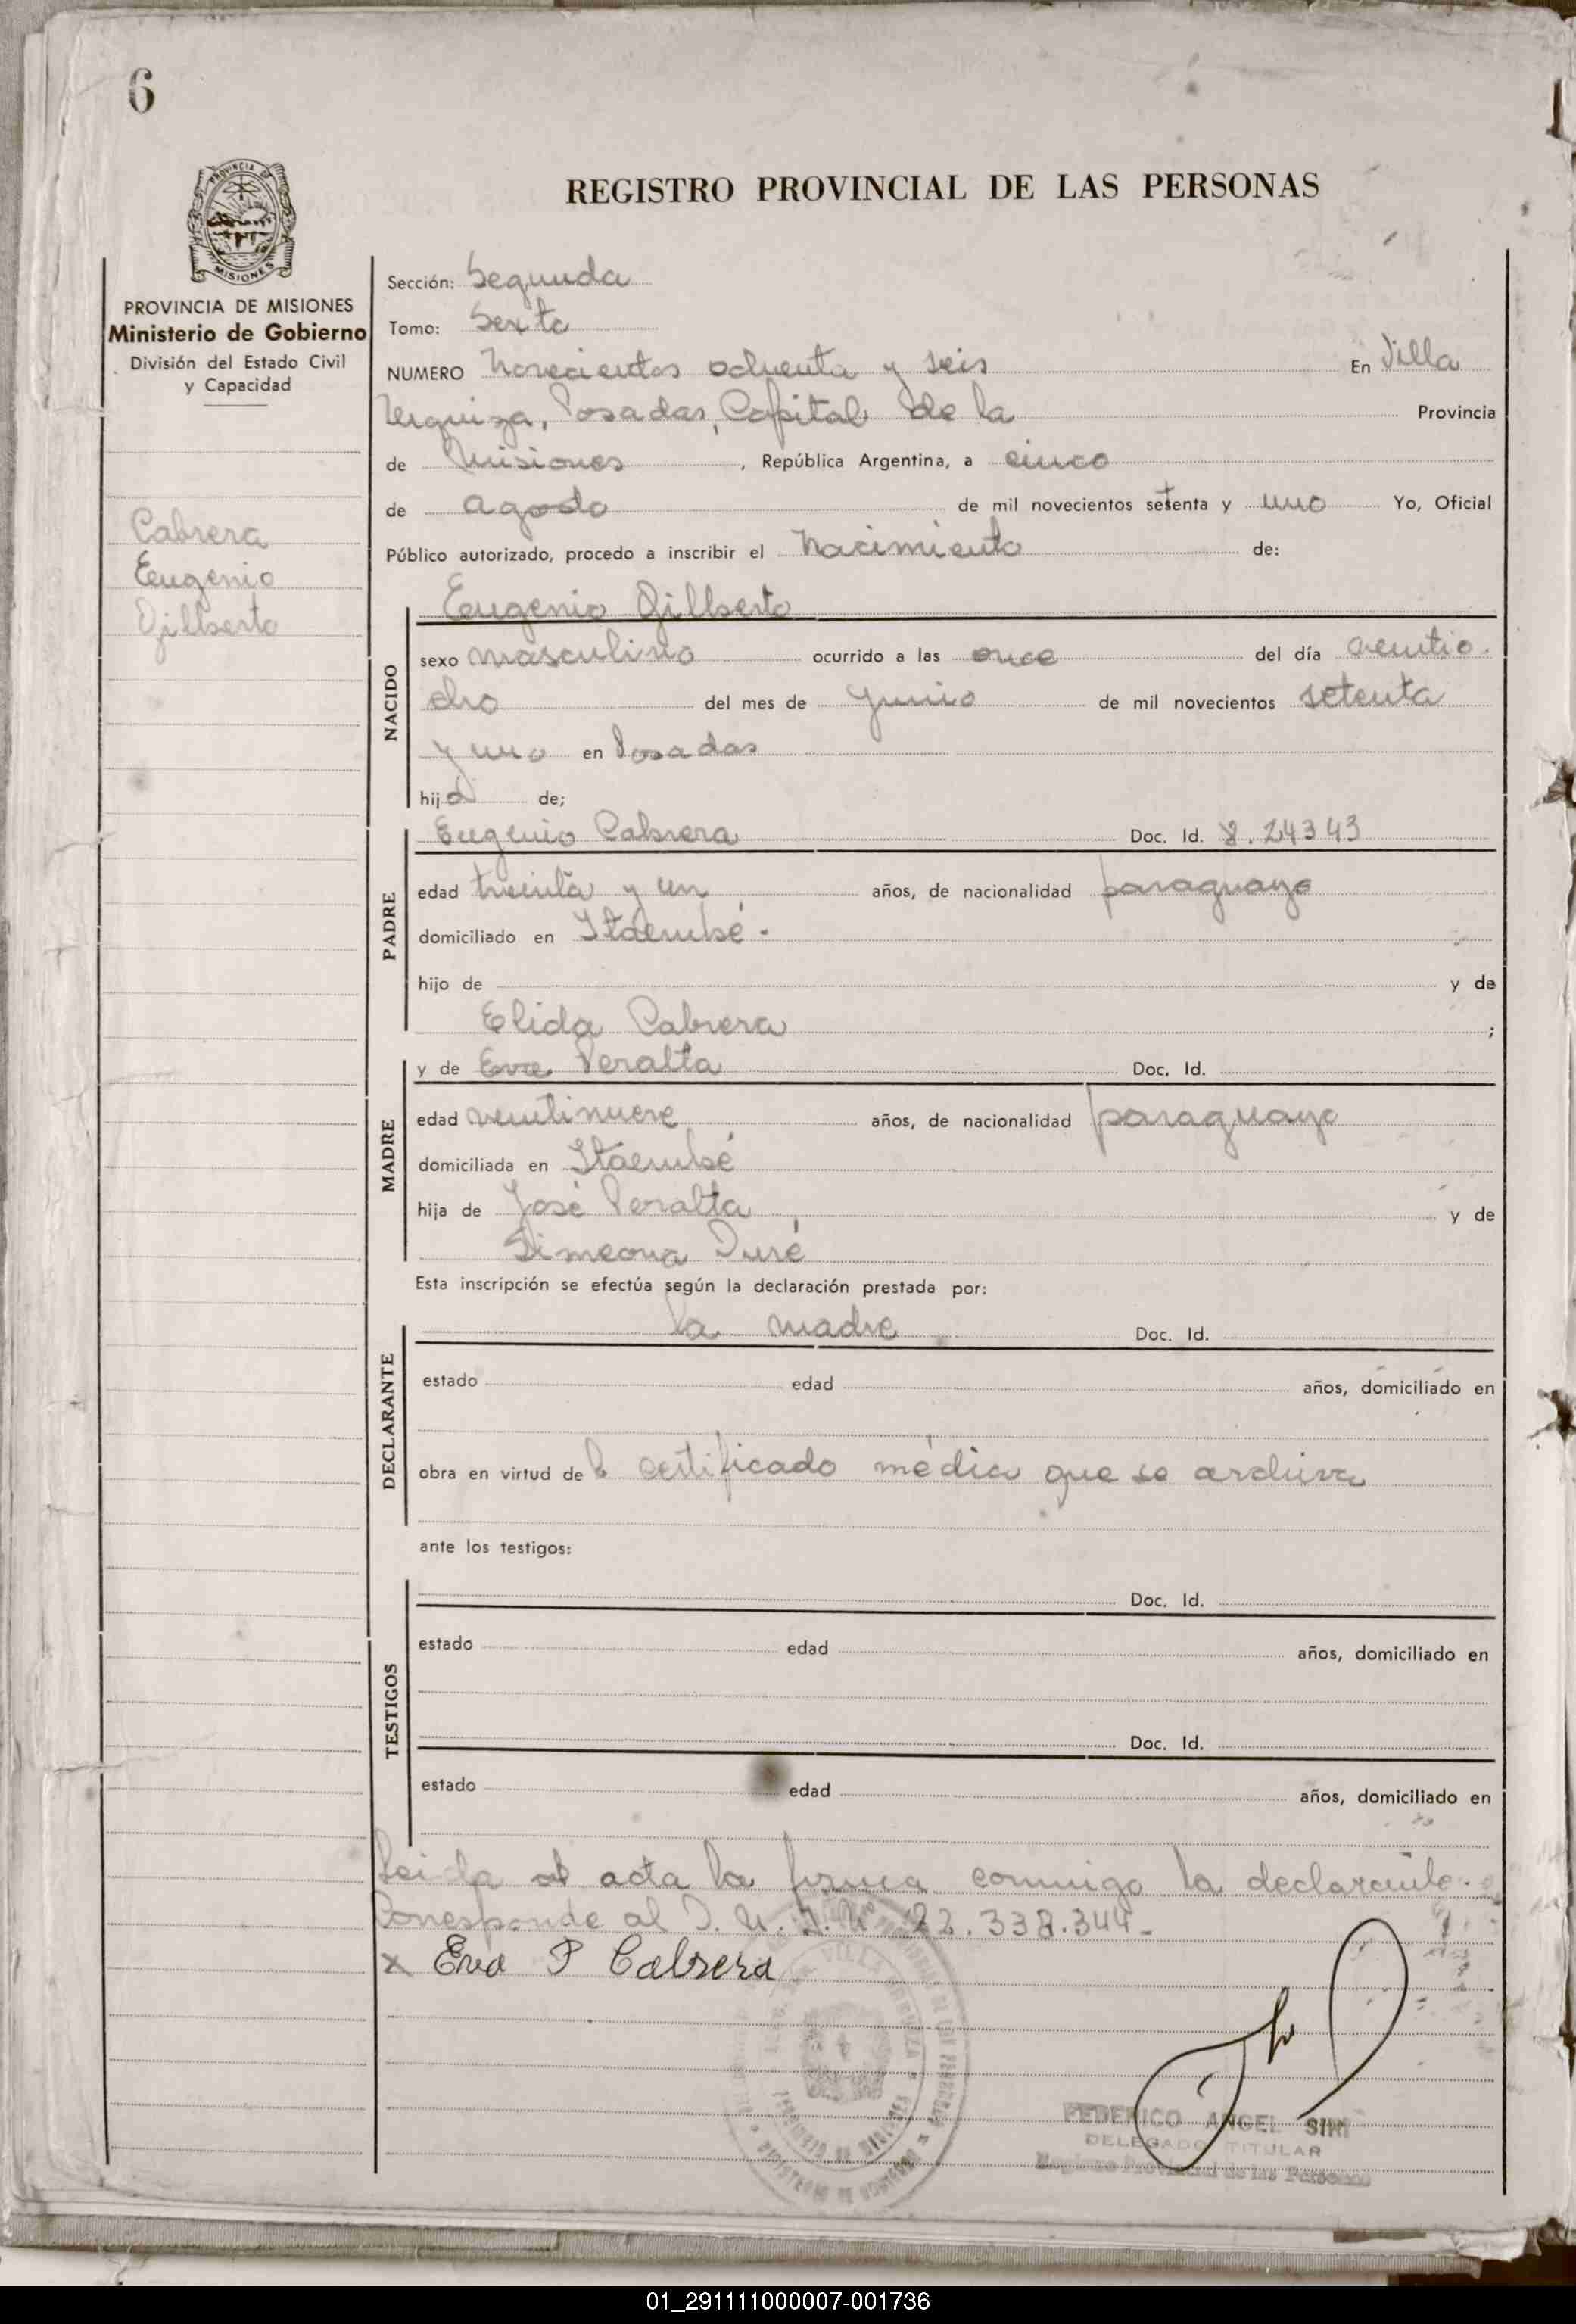 6
PROVINCIA
MISIONES
PROVINCIA DE MISIONES
Ministerio de Gobierno
División del Estado Civil
y Capacidad
Cabrera
Eugenio
Gilberto
REGISTRO PROVINCIAL DE LAS PERSONAS
Sección: Segunda
Tomo: Sexto
NUMERO Novecientos ochenta y seis En Villa
Urquiza, Posadas, Capital de la Provincia
de Misiones, República Argentina, a cinco
de agosto de mil novecientos setenta y uno Yo, Oficial
Público autorizado, procedo a inscribir el Nacimiento de:
NACIDO
Eugenio Gilberto
sexo masculino ocurrido a las once del día veintio-
cho del mes de junio de mil novecientos setenta
y uno en Posadas
hijo de;
PADRE
Eugenio Cabrera Doc. Id. 8.24343
edad treinta y un años, de nacionalidad paraguayo
domiciliado en Itaembé.
hijo de y de
Elida Cabrera ;
MADRE
y de Eva Peralta Doc. Id.
edad veintinueve años, de nacionalidad paraguaya
domiciliada en Itaembé
hija de José Peralta y de
Simeona Duré
Esta inscripción se efectúa según la declaración prestada por:
DECLARANTE
la madre Doc. Id.
estado edad años, domiciliado en
obra en virtud de certificado médico que se archiva
ante los testigos:
TESTIGOS
Doc. Id.
estado edad años, domiciliado en
Doc. Id.
estado edad años, domiciliado en
Leida el acta la firma conmigo la declarante.
Corresponde al D.U.I.N 22.338.344-
x Eva P Cabrera
FEDERICO ANGEL SIRI
DELEGADO TITULAR
Registro Provincial de las Personas
01_291111000007-001736